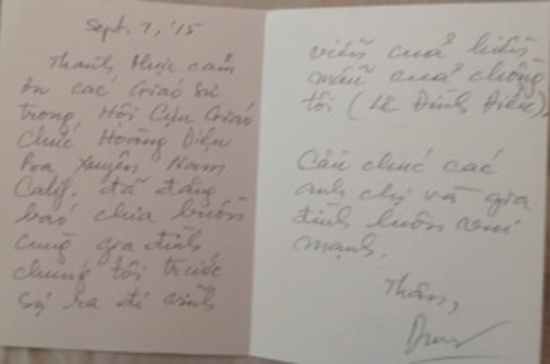 Sept. 7, '15
Thành thực cảm
ơn các Giáo sư
trong Hội Cựu Giáo
chức Hoàng Diệu
Ba Xuyên Nam
Calif. đã đăng
báo chia buồn
cùng gia đình
chúng tôi trước
sự ra đi vĩnh
viễn của hiền
mẫu của chồng
tôi (Lê Đình Điểu).
Cầu chúc các
anh chị và gia
đình luôn vui
mạnh.
Thân,